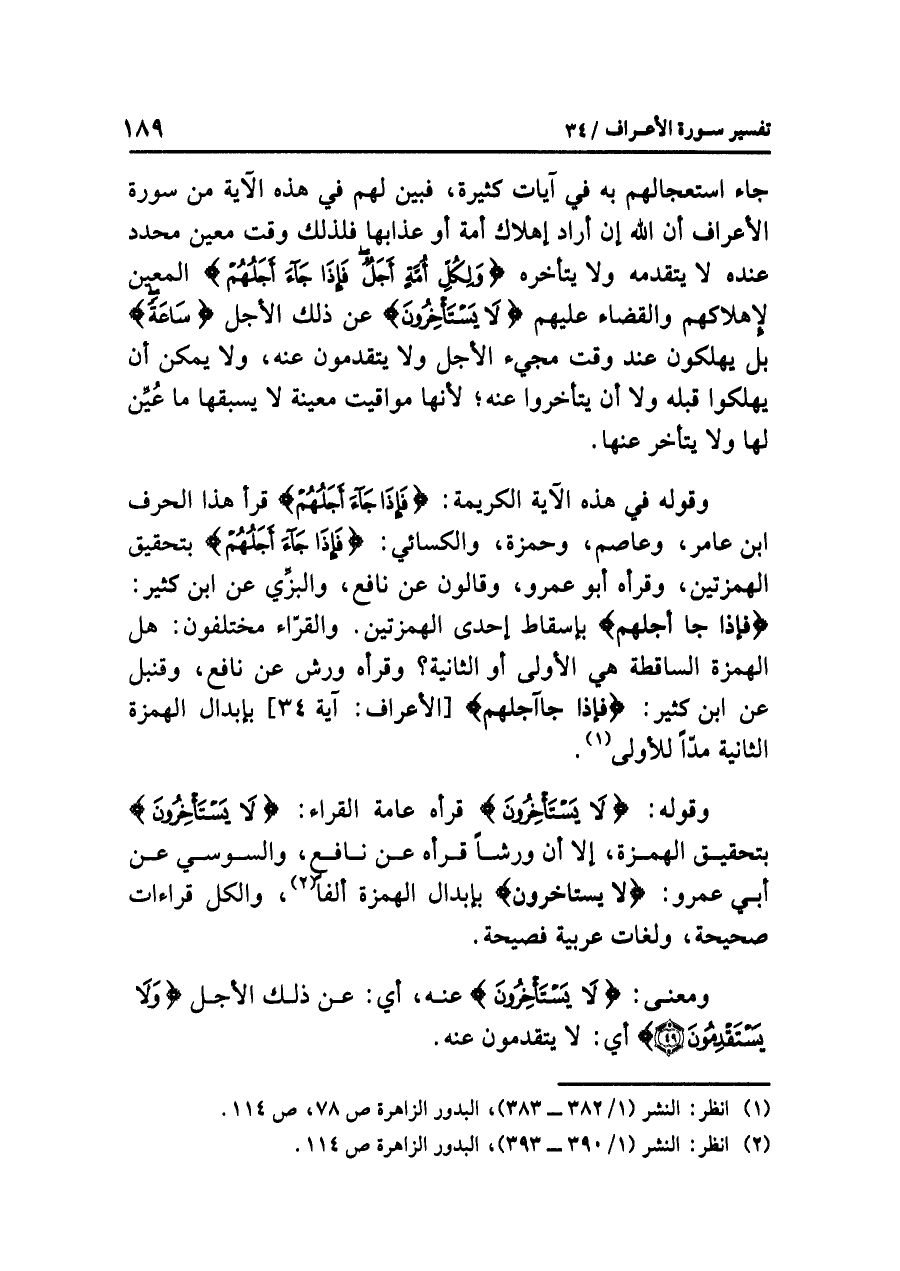 تفسير سورة الأعراف / ٣٤ ١٨٩
جاء استعجالهم به في آيات كثيرة، فبين لهم في هذه الآية من سورة
الأعراف أن الله إن أراد إهلاك أمة أو عذابها فلذلك وقت معين محدد
عنده لا يتقدمه ولا يتأخره ﴿وَلِكُلِّ أُمَّةٍ أَجَلٌۖ فَإِذَا جَآءَ أَجَلُهُمْ﴾ المعين
لإهلاكهم والقضاء عليهم ﴿لَا يَسْتَأْخِرُونَ﴾ عن ذلك الأجل ﴿سَاعَةًۖ﴾
بل يهلكون عند وقت مجيء الأجل ولا يتقدمون عنه، ولا يمكن أن
يهلكوا قبله ولا أن يتأخروا عنه؛ لأنها مواقيت معينة لا يسبقها ما عُيِّن
لها ولا يتأخر عنها.
وقوله في هذه الآية الكريمة: ﴿فَإِذَا جَآءَ أَجَلُهُمْ﴾ قرأ هذا الحرف
ابن عامر، وعاصم، وحمزة، والكسائي: ﴿فَإِذَا جَآءَ أَجَلُهُمْ﴾ بتحقيق
الهمزتين، وقرأه أبو عمرو، وقالون عن نافع، والبزِّي عن ابن كثير:
﴿فإذا جا أجلهم﴾ بإسقاط إحدى الهمزتين. والقرّاء مختلفون: هل
الهمزة الساقطة هي الأولى أو الثانية؟ وقرأه ورش عن نافع، وقنبل
عن ابن كثير: ﴿فإذا جاآجلهم﴾ [الأعراف: آية ٣٤] بإبدال الهمزة
الثانية مدّاً للأولى(١).
وقوله: ﴿لَا يَسْتَأْخِرُونَ﴾ قرأه عامة القراء: ﴿لَا يَسْتَأْخِرُونَ﴾
بتحقيق الهمزة، إلا أن ورشاً قرأه عن نافع، والسوسي عن
أبي عمرو: ﴿لا يستاخرون﴾ بإبدال الهمزة ألفاً(٢)، والكل قراءات
صحيحة، ولغات عربية فصيحة.
ومعنى: ﴿لَا يَسْتَأْخِرُونَ﴾ عنه، أي: عن ذلك الأجل ﴿وَلَا
يَسْتَقْدِمُونَ ٤٩﴾ أي: لا يتقدمون عنه.
(١) انظر: النشر (١/ ٣٨٢ ــ ٣٨٣)، البدور الزاهرة ص ٧٨، ص ١١٤.
(٢) انظر: النشر (١/ ٣٩٠ ــ ٣٩٣)، البدور الزاهرة ص ١١٤.